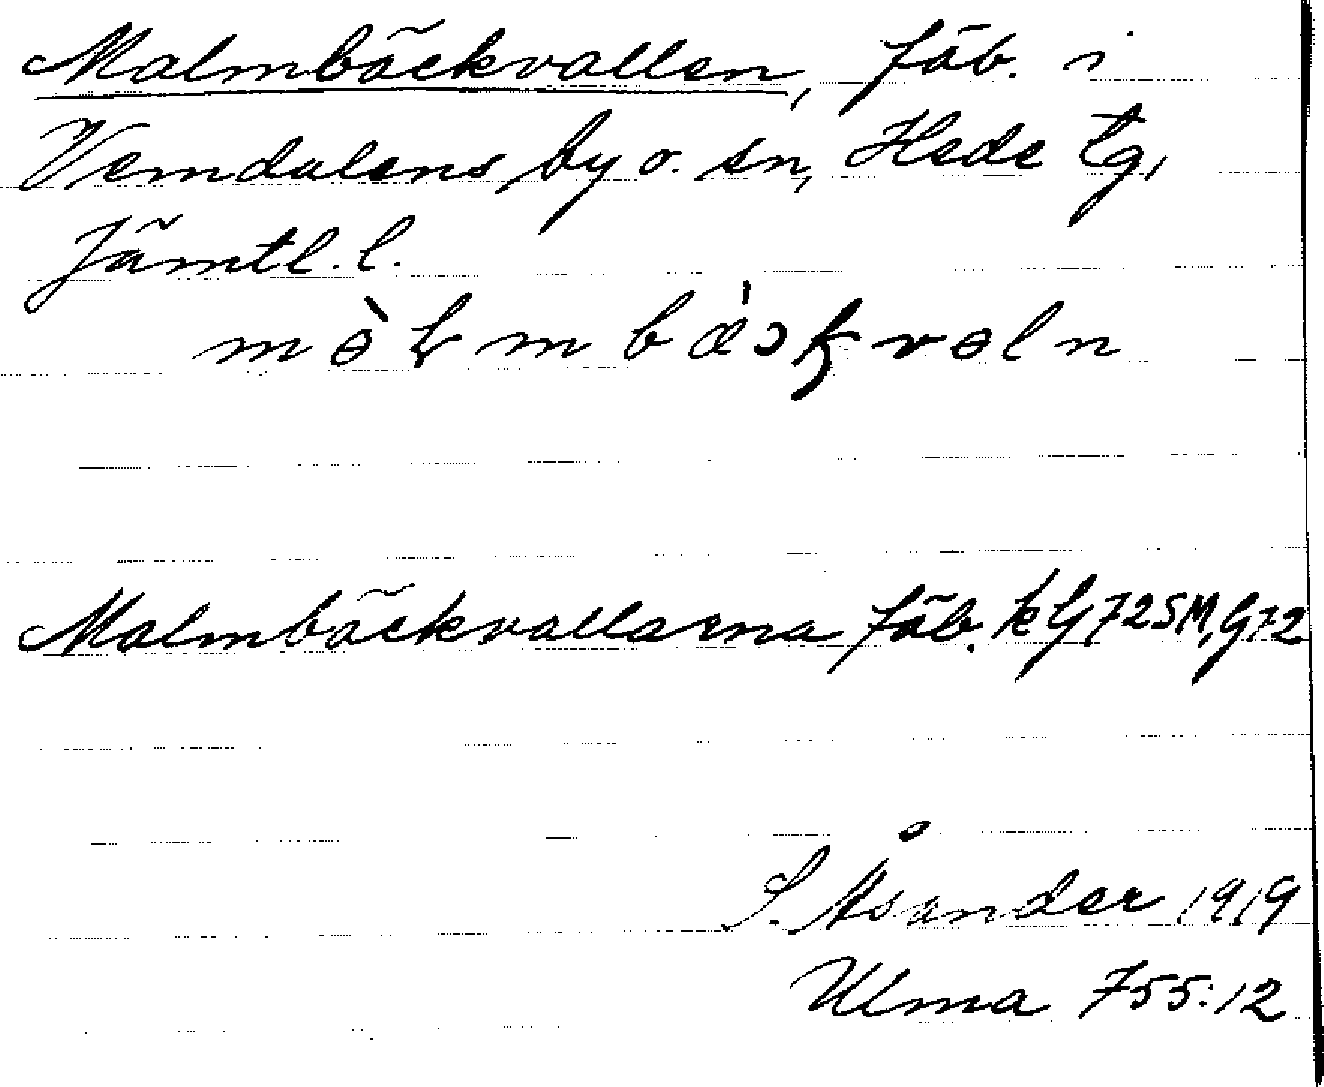 Malmbäckvallen, fäb. i
Vemdalens by o. sn, Hede tg,
Jämtl. l.
Malmbäckvallarna fäb. kG72SM, G72
S. Åsander 1919
Ulma 755:12